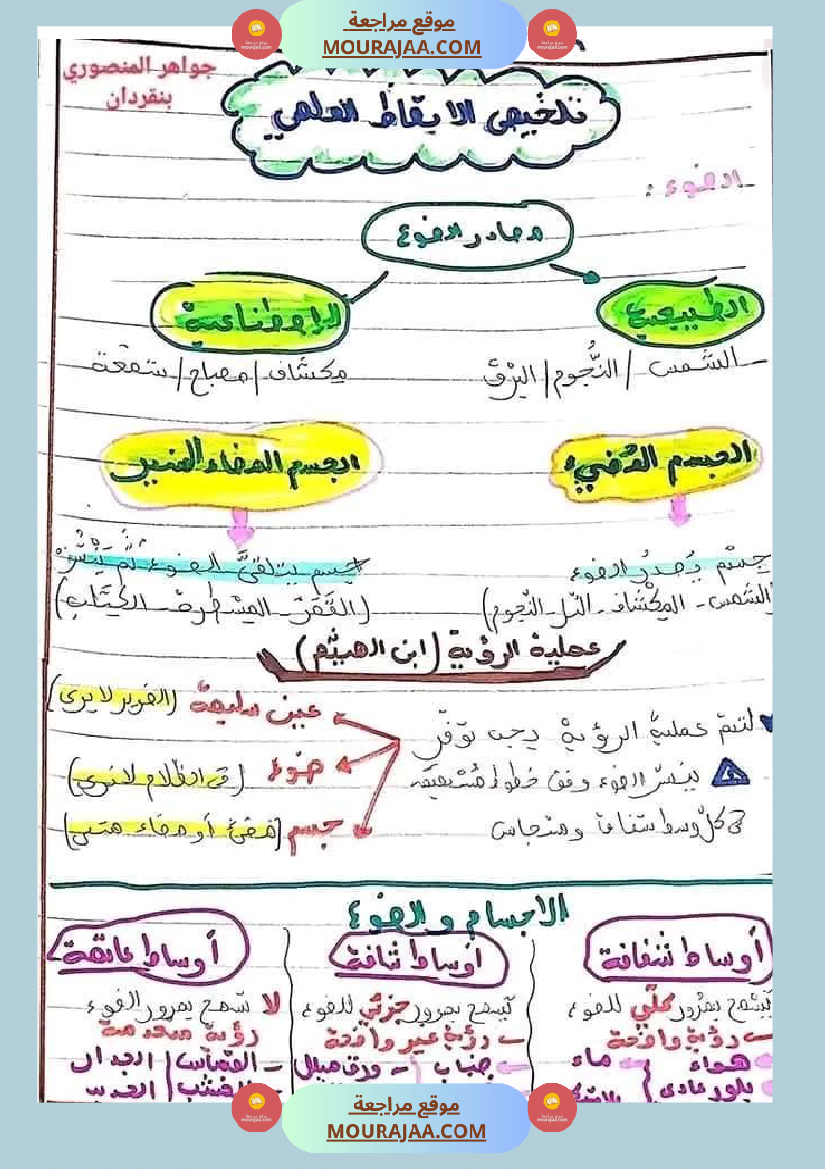 موقع مراجعة
MOURAJAA.COM
جواهر المنصوري
بنقردان
تلخيص الايقاظ العلمي
الضوء :
مصادر الضوء
الطبيعية
الإصطناعية
الشمس / النُّجوم / البرق
مكشاف / مصباح / شمعة
الجسم المُضيء
الجسم المضاء المنير
جسم يُصدرُ الضوء
جسم يتلقىَّ الضوء ثُمّ يَنْشُرُ
(الشمس - المكشاف - النجوم)
(القمر - - الكتاب)
عملية الرؤية (ابن الهيثم)
لتتم عملية الرؤية يجب توفّر
عين سليمة (الضرير لا يرى)
ضوء (في الظلام لا نرى)
جسم (مضيء أو مضاء)
ينتشر الضوء وفق خطوط مستقيمة
في كلّ وسط شفاف و متجانس
الاجسام و الضوء
أوساط شفافة
أوساط شافة
أوساط عاتمة
تسمح بمرور كلّي للضوء
تسمح بمرور جزئي للضوء
لا تسمح بمرور الضوء
رؤية واضحة
رؤية غير واضحة
رؤية منعدمة
هواء
ماء
بلور عادي
ضباب
القماش
الجدار
الخشب
موقع مراجعة
MOURAJAA.COM